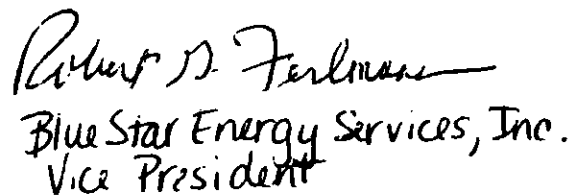 Robert G.
Blue Star Energy Services, Inc.
Vice President